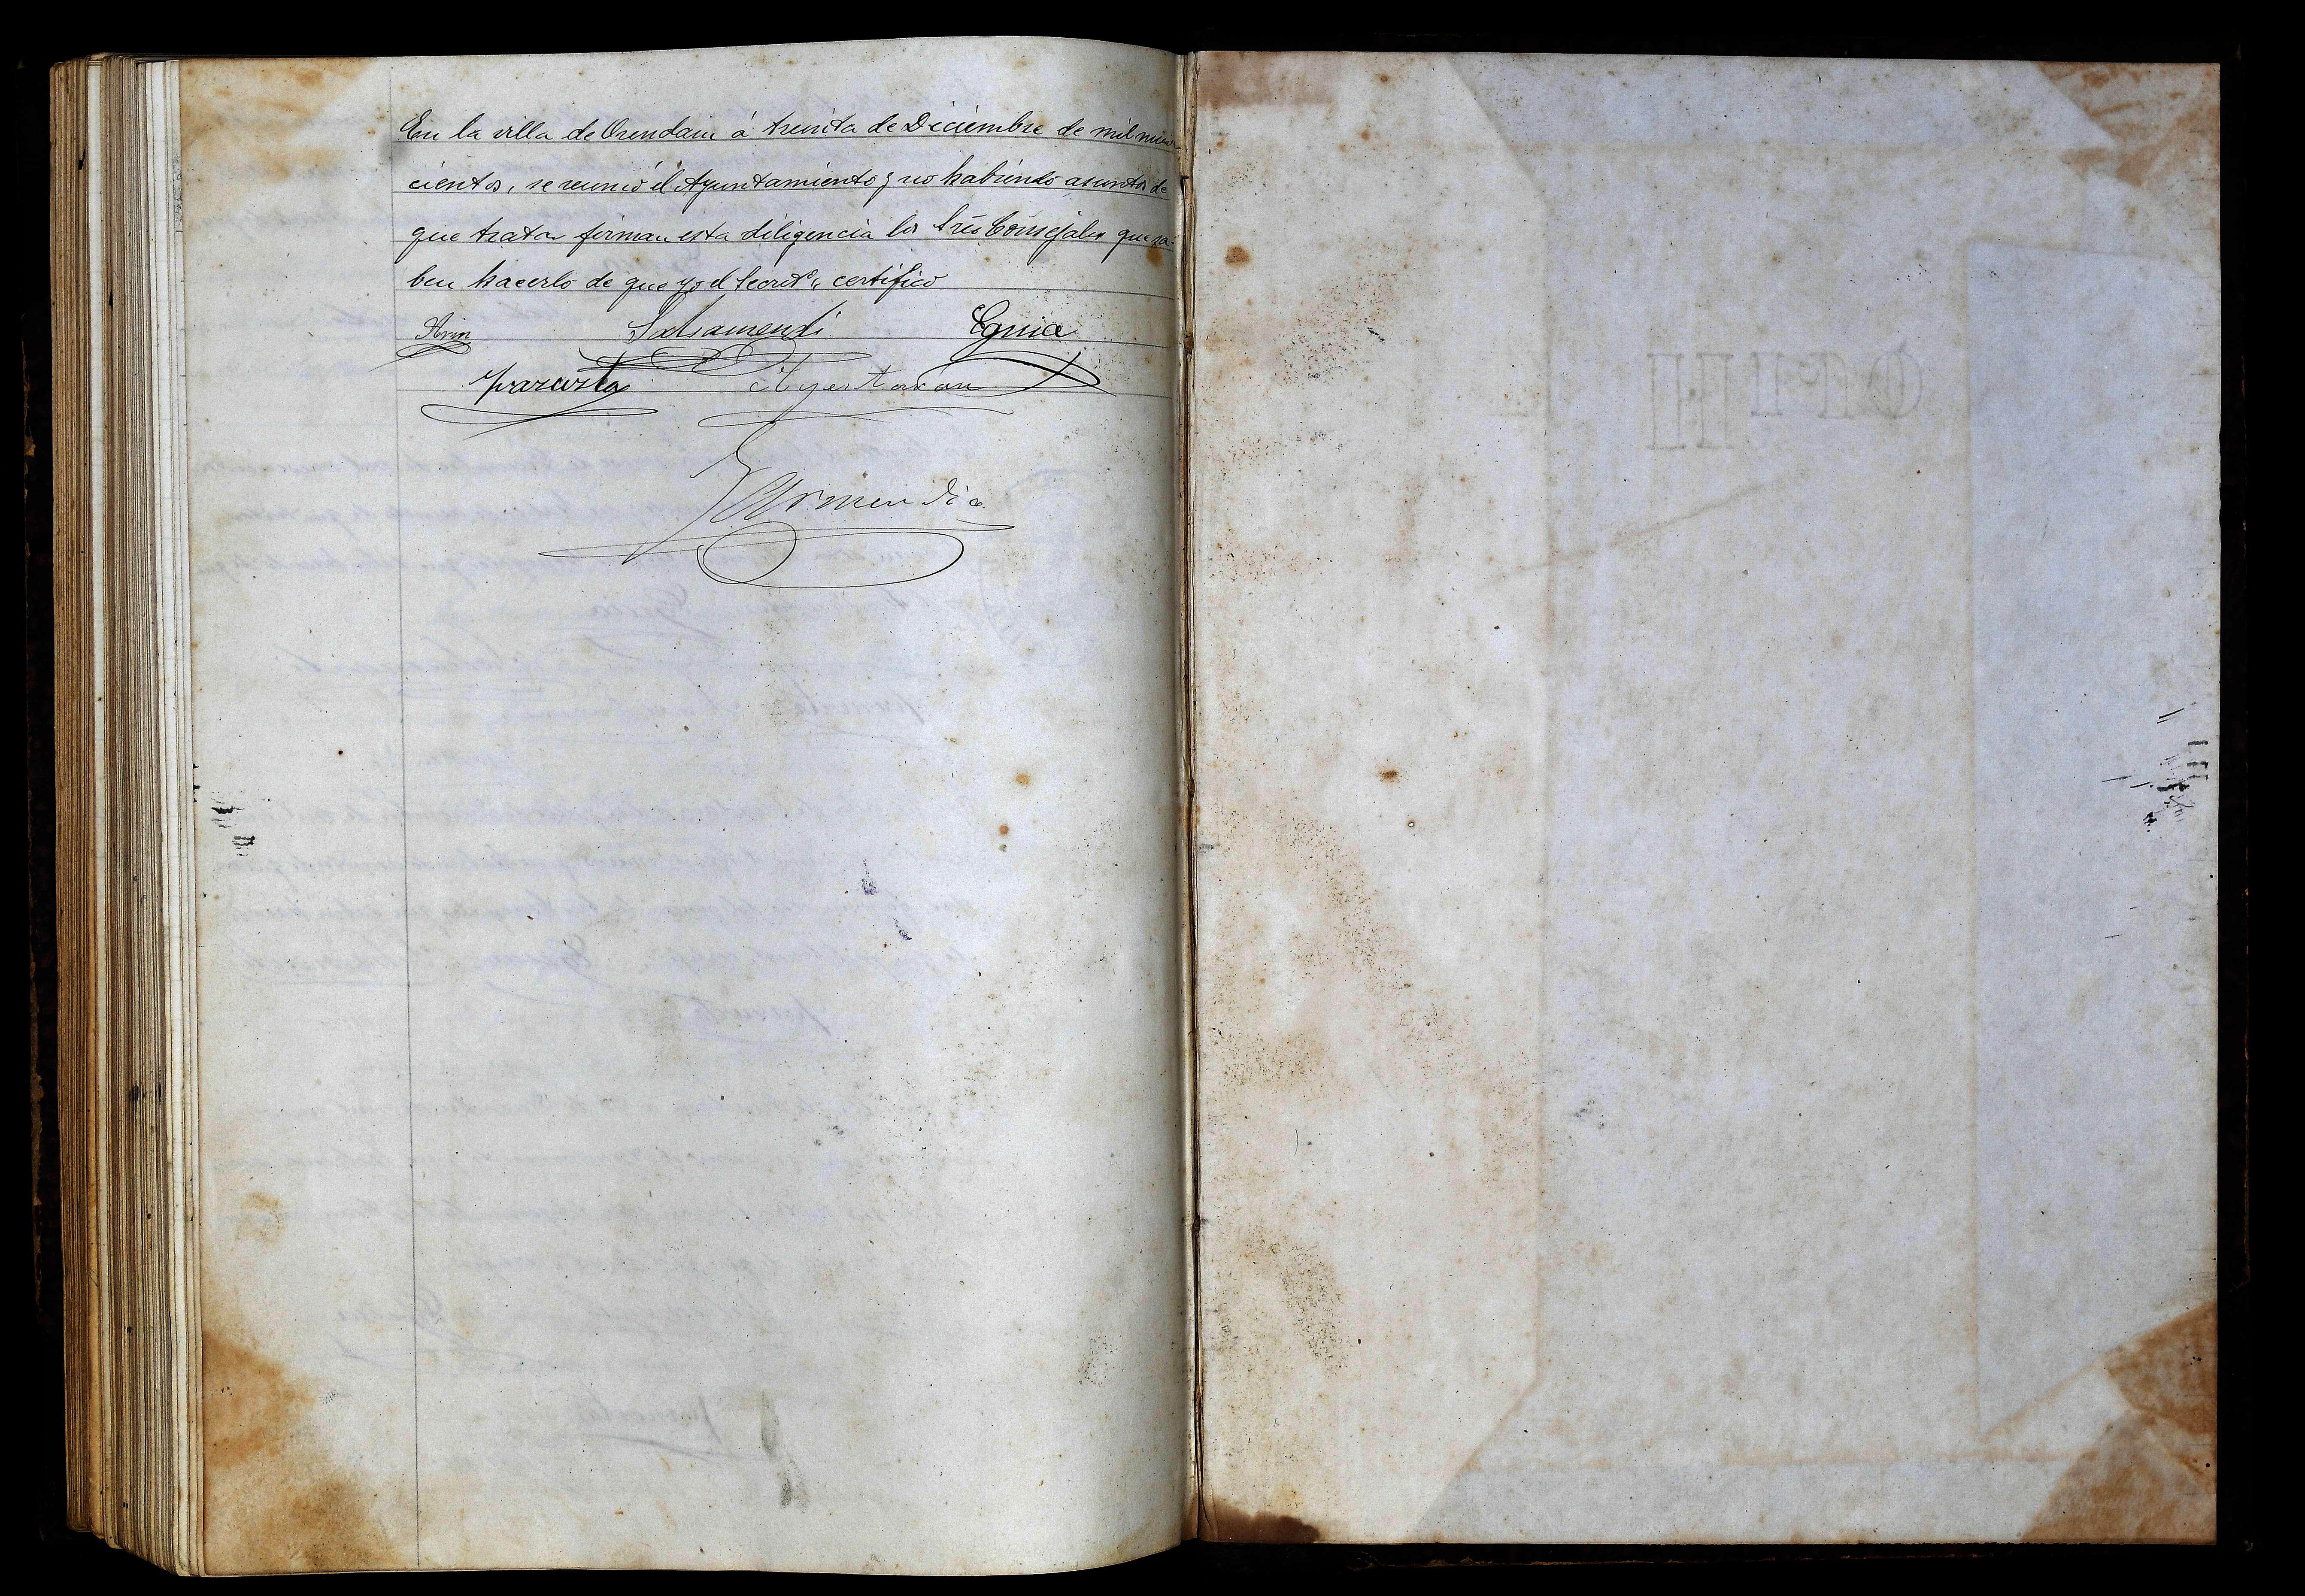 En la villa de Orendain á treinta de Diciembre de mil nuve-
cientos, se reunió el Ayuntamiento y no habiendo asuntos de
que tratar firman esta diligencia los tres Concejales que sa-
ben hacerlo de que yo el Secretº certifico
Arin Salsamendi Eguia
Yrazusta Ayestaran
Garmendia